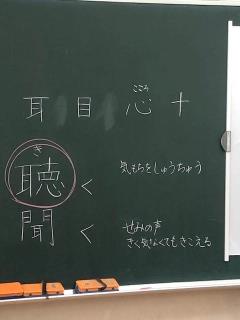 こころ
耳 目 心 十
き
聴く 気もちをしゅうちゅう
聞く せみの声
きく気なくてもきこえる